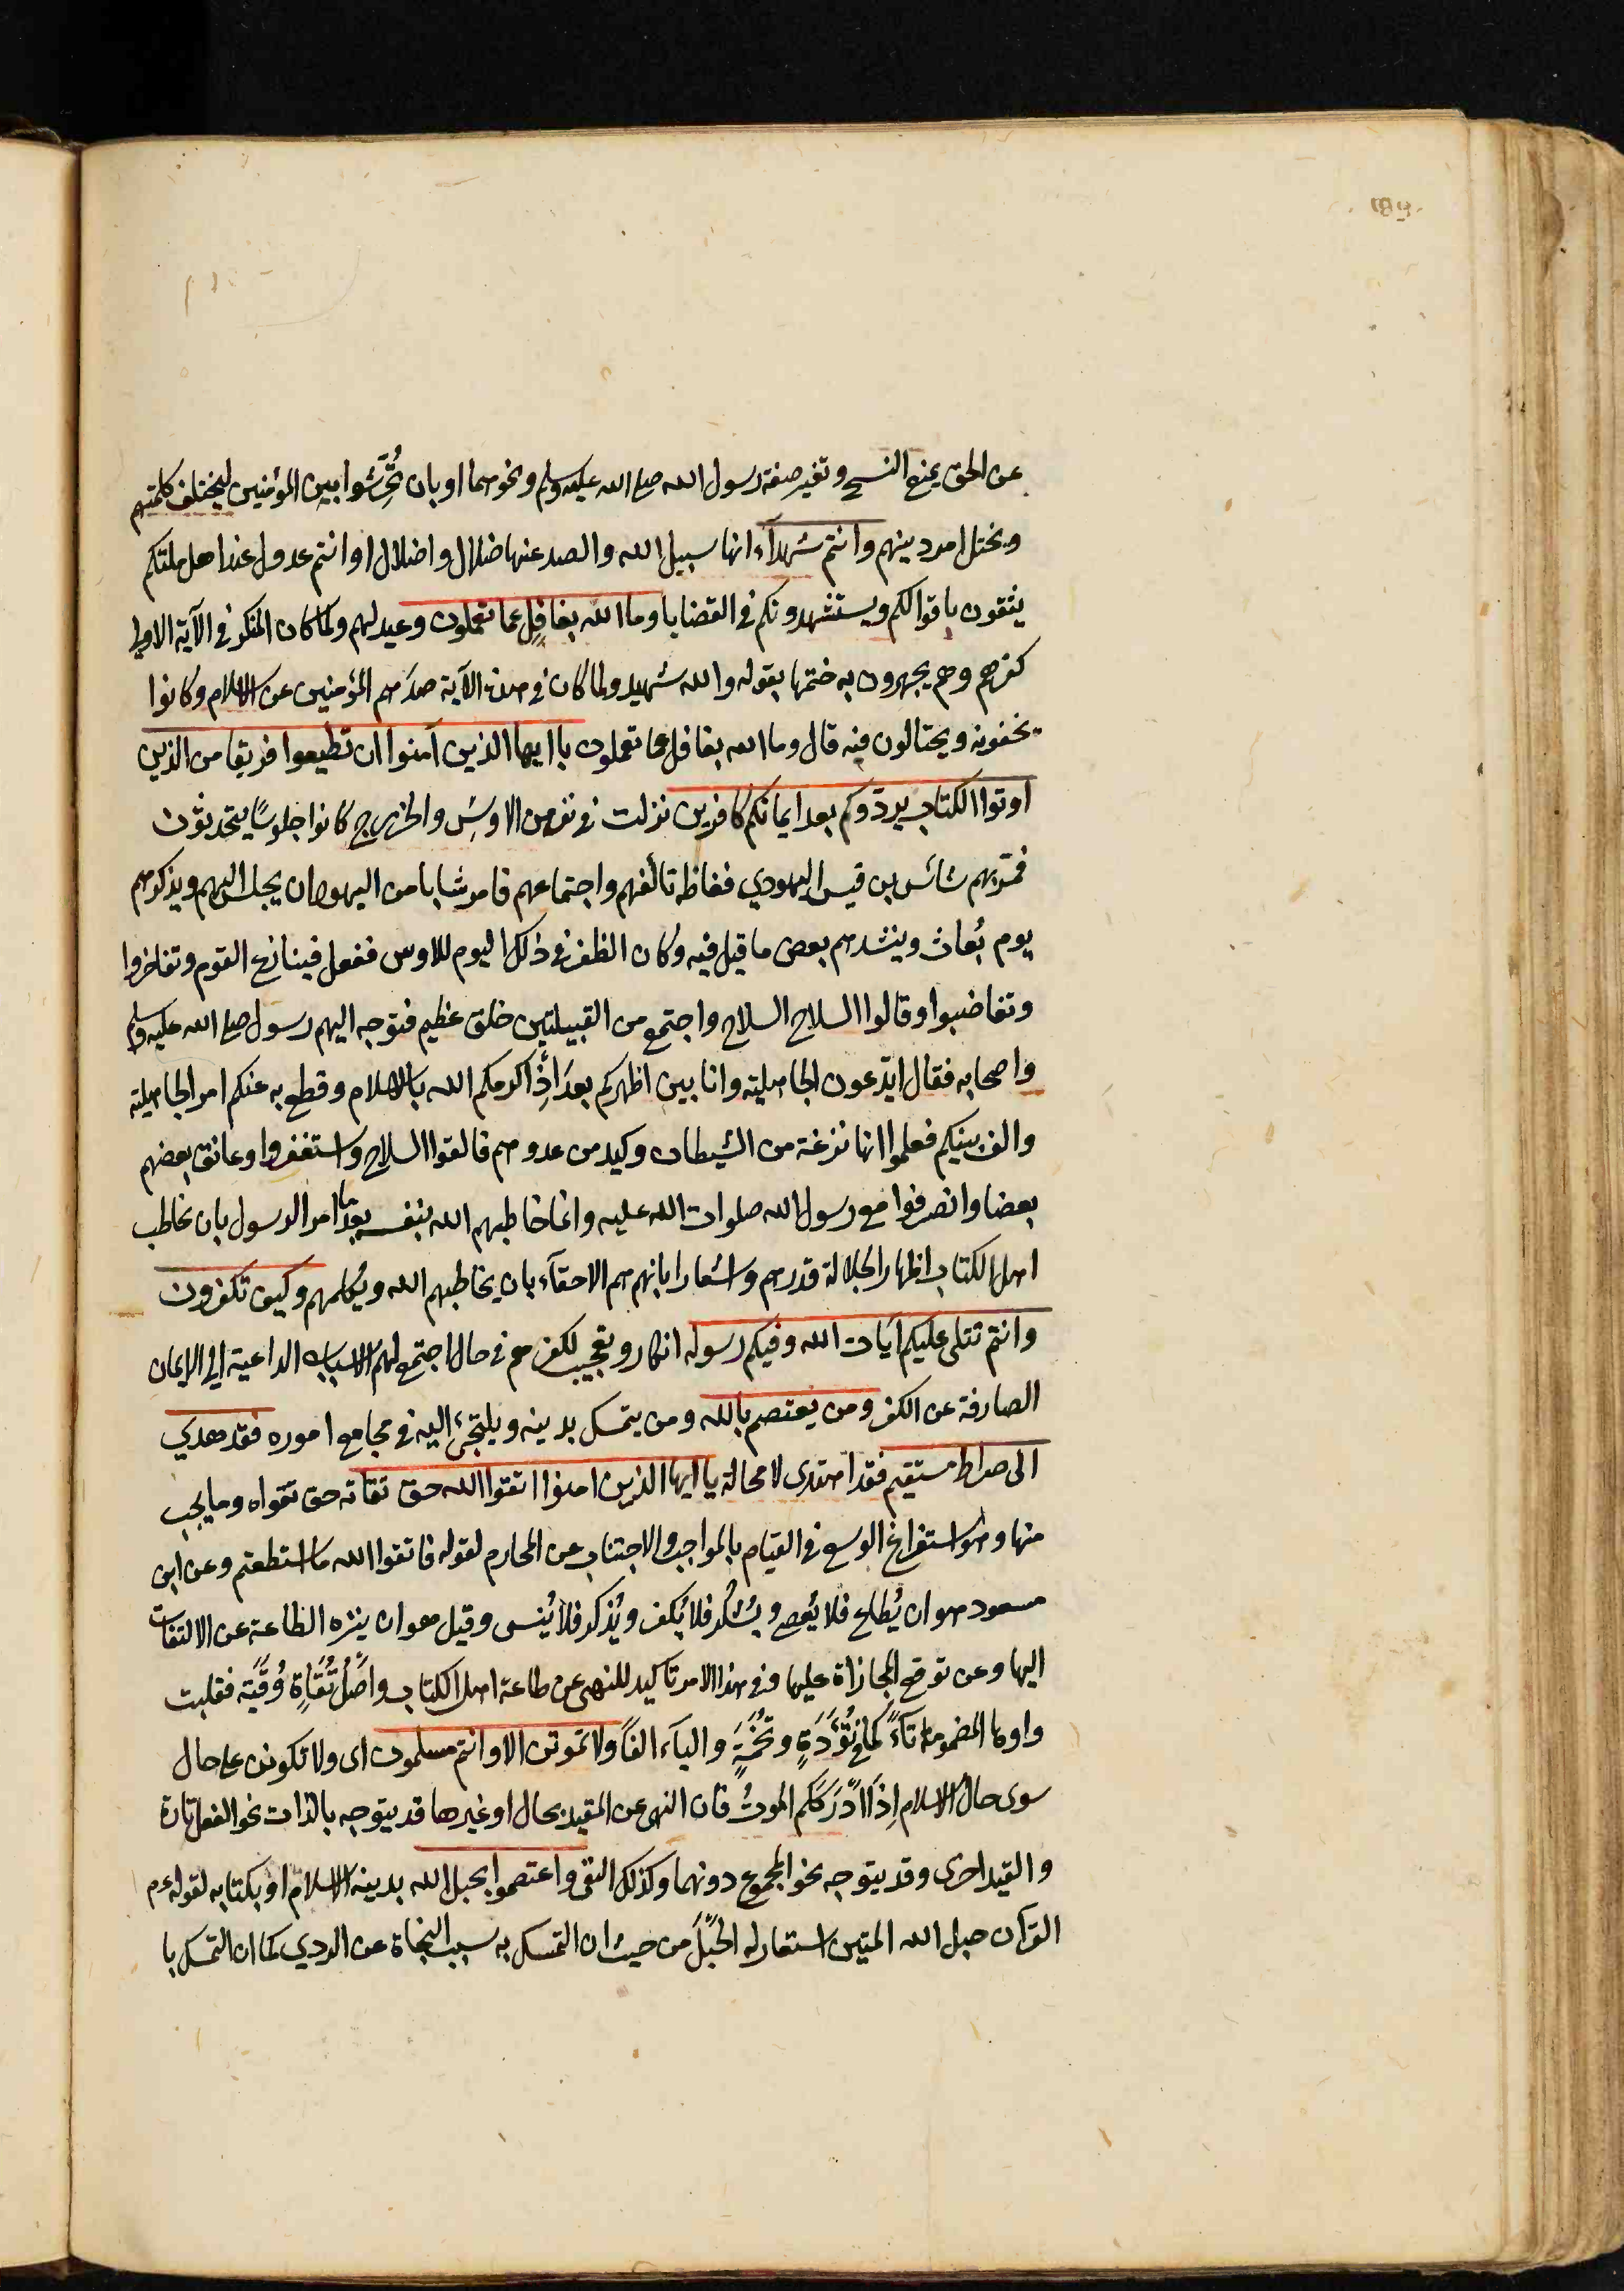 عن الحق بمنع النسخ وتغير صفة رسول الله صلى الله عليه وسلم ونحوهما او بان تُحَرِّشُوا بين المؤمنين ليختلف كلمتهم
ويختل امر دينهم وانتم شهدآء انها سبيل الله والصد عنها ضلال واضلال او انتم عدول عند اهل ملتكم
يثقون باقوالكم ويستشهدونكم في القضايا وما الله بغافل عما تعملون وعيد لهم ولما كان المنكر في الآية الاولى
كفرهم وهم يجهرون به ختمها بقوله والله شهيد ولما كان في هذه الآية صدّهم المؤمنين عن الاسلام وكانوا
يخفونه ويحتالون فيه قال وما الله بغافل عما تعملون يا ايها الذين آمنوا ان تطيعوا فريقا من الذين
اوتوا الكتاب يردّوكم بعد ايمانكم كافرين نزلت في نفر من الاوسِ والخزرج كانوا جلوسًا يتحدثون
فمرّ بهم شاس بن قيس اليهودي فغاظه تألفهم واجتماعهم فامر شابا من اليهود ان يجلس اليهم ويذكرهم
يوم بُعاث وينشدهم بعض ما قيل فيه وكان الظفر في ذلك اليوم للاوس ففعل فينازع القوم وتفاخروا
وتغاضبوا وقالوا السلاح السلاح واجتمع من القبيلتين خلق عظيم فتوجه اليهم رسول صلى الله عليه وسلم
واصحابه فقال ايدّعون الجاهلية وانا بين اظهركم بعدَ اِذ اكرمكم الله بالاسلام وقطع به عنكم امر الجاهلية
والف بينكم فعلموا انها نزغة من الشيطان وكيد من عدوهم فالقوا السلاح واستغفروا وعانق بعضهم
بعضا وانصرفوا مع رسول الله صلوات الله عليه وانما خاطبهم الله بنفسه بعد ما امر الرسول بان يخاطب
اهل الكتاب اظهارا لجلالة قدرهم واشعارا بانهم هم الاحقآء بان يخاطبهم الله ويُكلمهم وكيف تكفرون
وانتم تتلى عليكم آيات الله وفيكم رسوله انكار وتعجيب لكفرهم في حال اجتمع لهم الاسباب الداعية الى الايمان
الصارفة عن الكفر ومن يعتصم بالله ومن يتمسك بدينه ويلتجئ اليه في مجامع اموره فقد هدي
الى صراط مستقيم فقد اهتدى لا محالة يا ايها الذين امنوا اتقوا الله حق تقاته حق تقواه وما يجب
منها وهو استفراغ الوسع في القيام بالمواجب والاجتناب عن المحارم لقوله فاتقوا الله ما استطعتم وعن ابن
مسعود هو ان يُطاع فلا يُعصى ويُشكر فلا يُكفر ويُذكر فلا يُنسى وقيل هو ان ينزه الطاعة عن الالتفات
اليها وعن توقع المجازاة عليها وفي هذا الامر تاكيد للنهي عن طاعة اهل الكتاب واَصْلُ تُقَاةٍ وُقَيَة فقلبت
واوها المضمومة تآءً كما في تُؤَدَةٍ وتُخَمَةٍ واليآء الفًا ولا تموتن الا وانتم مسلمون اى ولا تكونن على حال
سوى حال الاسلام اِذَا اَدْرَكَكم الموتُ فان النهى عن المقيد بحال او غيرها قد يتوجه بالذات نحو الفعل تارة
والقيد اخرى وقد يتوجه نحو المجموع دونهما وكذلك النفى واعتصموا بحبل الله بدينه الاسلام او بكتابه لقوله ء م
القرآن حبل الله المتين استعار له الحَبْلَ من حيث ان التمسك به سبب النجاة عن الردي كما ان التمسك با